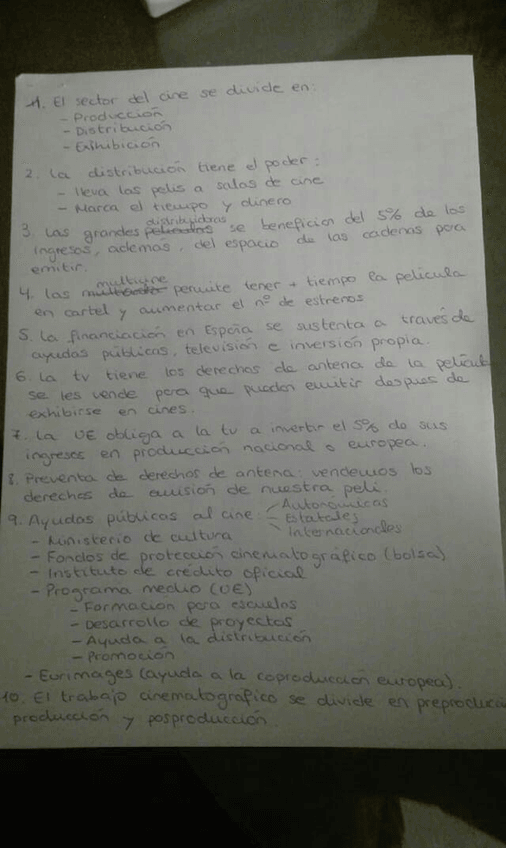 1. El sector del cine se divide en:
- Producción
- Distribución
- Exhibición
2. La distribución tiene el poder:
- lleva las pelis a salas de cine
- Marca el tiempo y dinero
distribuidoras
3. Las grandes películas se benefician del 5% de los
ingresos, además, del espacio de las cadenas para
emitir.
multicine
4. las permite tener + tiempo la película
en cartel y aumentar el nº de estrenos
5. La financiación en España se sustenta a través de
ayudas públicas, televisión e inversión propia.
6. La tv tiene los derechos de antena de la películ
se les vende para que puedan emitir después de
exhibirse en cines.
7. La UE obliga a la tv a invertir el 5% de sus
ingresos en producción nacional o europea.
8. Preventa de derechos de antena: vendemos los
derechos de emisión de nuestra peli.
9. Ayudas públicas al cine: - Autonómicas
- Estatales
- Internacionales
- Ministerio de cultura
- Fondos de protección cinematográfico (bolsa)
- Instituto de crédito oficial
- Programa medio (UE)
- Formación para escuelas
- Desarrollo de proyectos
- Ayuda a la distribución
- Promoción
- Eurimages (ayuda a la coproducción europea).
10. El trabajo cinematográfico se divide en preproducci
producción y posproducción.